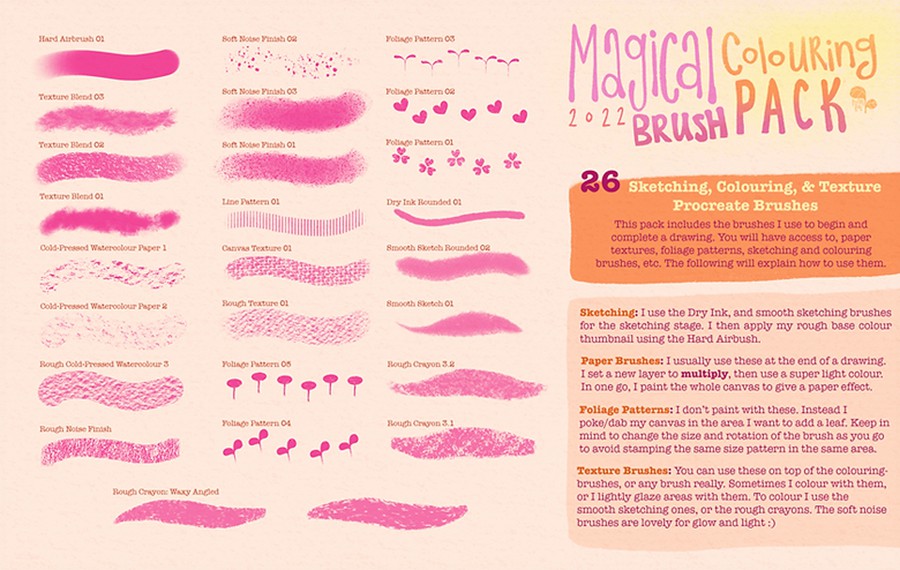 Hard Airbrush 01
Texture Blend 03
Texture Blend 02
Texture Blend 01
Cold-Pressed Watercolour Paper 1
Cold-Pressed Watercolour Paper 2
Rough Cold-Pressed Watercolour 3
Rough Noise Finish
Soft Noise Finish 02
Soft Noise Finish 03
Soft Noise Finish 01
Line Pattern 01
Canvas Texture 01
Rough Texture 01
Foliage Pattern 05
Foliage Pattern 04
Foliage Pattern 03
Foliage Pattern 02
Foliage Pattern 01
Dry Ink Rounded 01
Smooth Sketch Rounded 02
Smooth Sketch 01
Rough Crayon 3.2
Rough Crayon 3.1
Rough Crayon: Waxy Angled
Magical Colouring
2022 BRUSH PACK
26 Sketching, Colouring, & Texture
Procreate Brushes
This pack includes the brushes I use to begin and
complete a drawing. You will have access to, paper
textures, foliage patterns, sketching and colouring
brushes, etc. The following will explain how to use them.
Sketching: I use the Dry Ink, and smooth sketching brushes
for the sketching stage. I then apply my rough base colour
thumbnail using the Hard Airbush.
Paper Brushes: I usually use these at the end of a drawing.
I set a new layer to multiply, then use a super light colour.
In one go, I paint the whole canvas to give a paper effect.
Foliage Patterns: I don't paint with these. Instead I
poke/dab my canvas in the area I want to add a leaf. Keep in
mind to change the size and rotation of the brush as you go
to avoid stamping the same size pattern in the same area.
Texture Brushes: You can use these on top of the colouring-
brushes, or any brush really. Sometimes I colour with them,
or I lightly glaze areas with them. To colour I use the
smooth sketching ones, or the rough crayons. The soft noise
brushes are lovely for glow and light :)